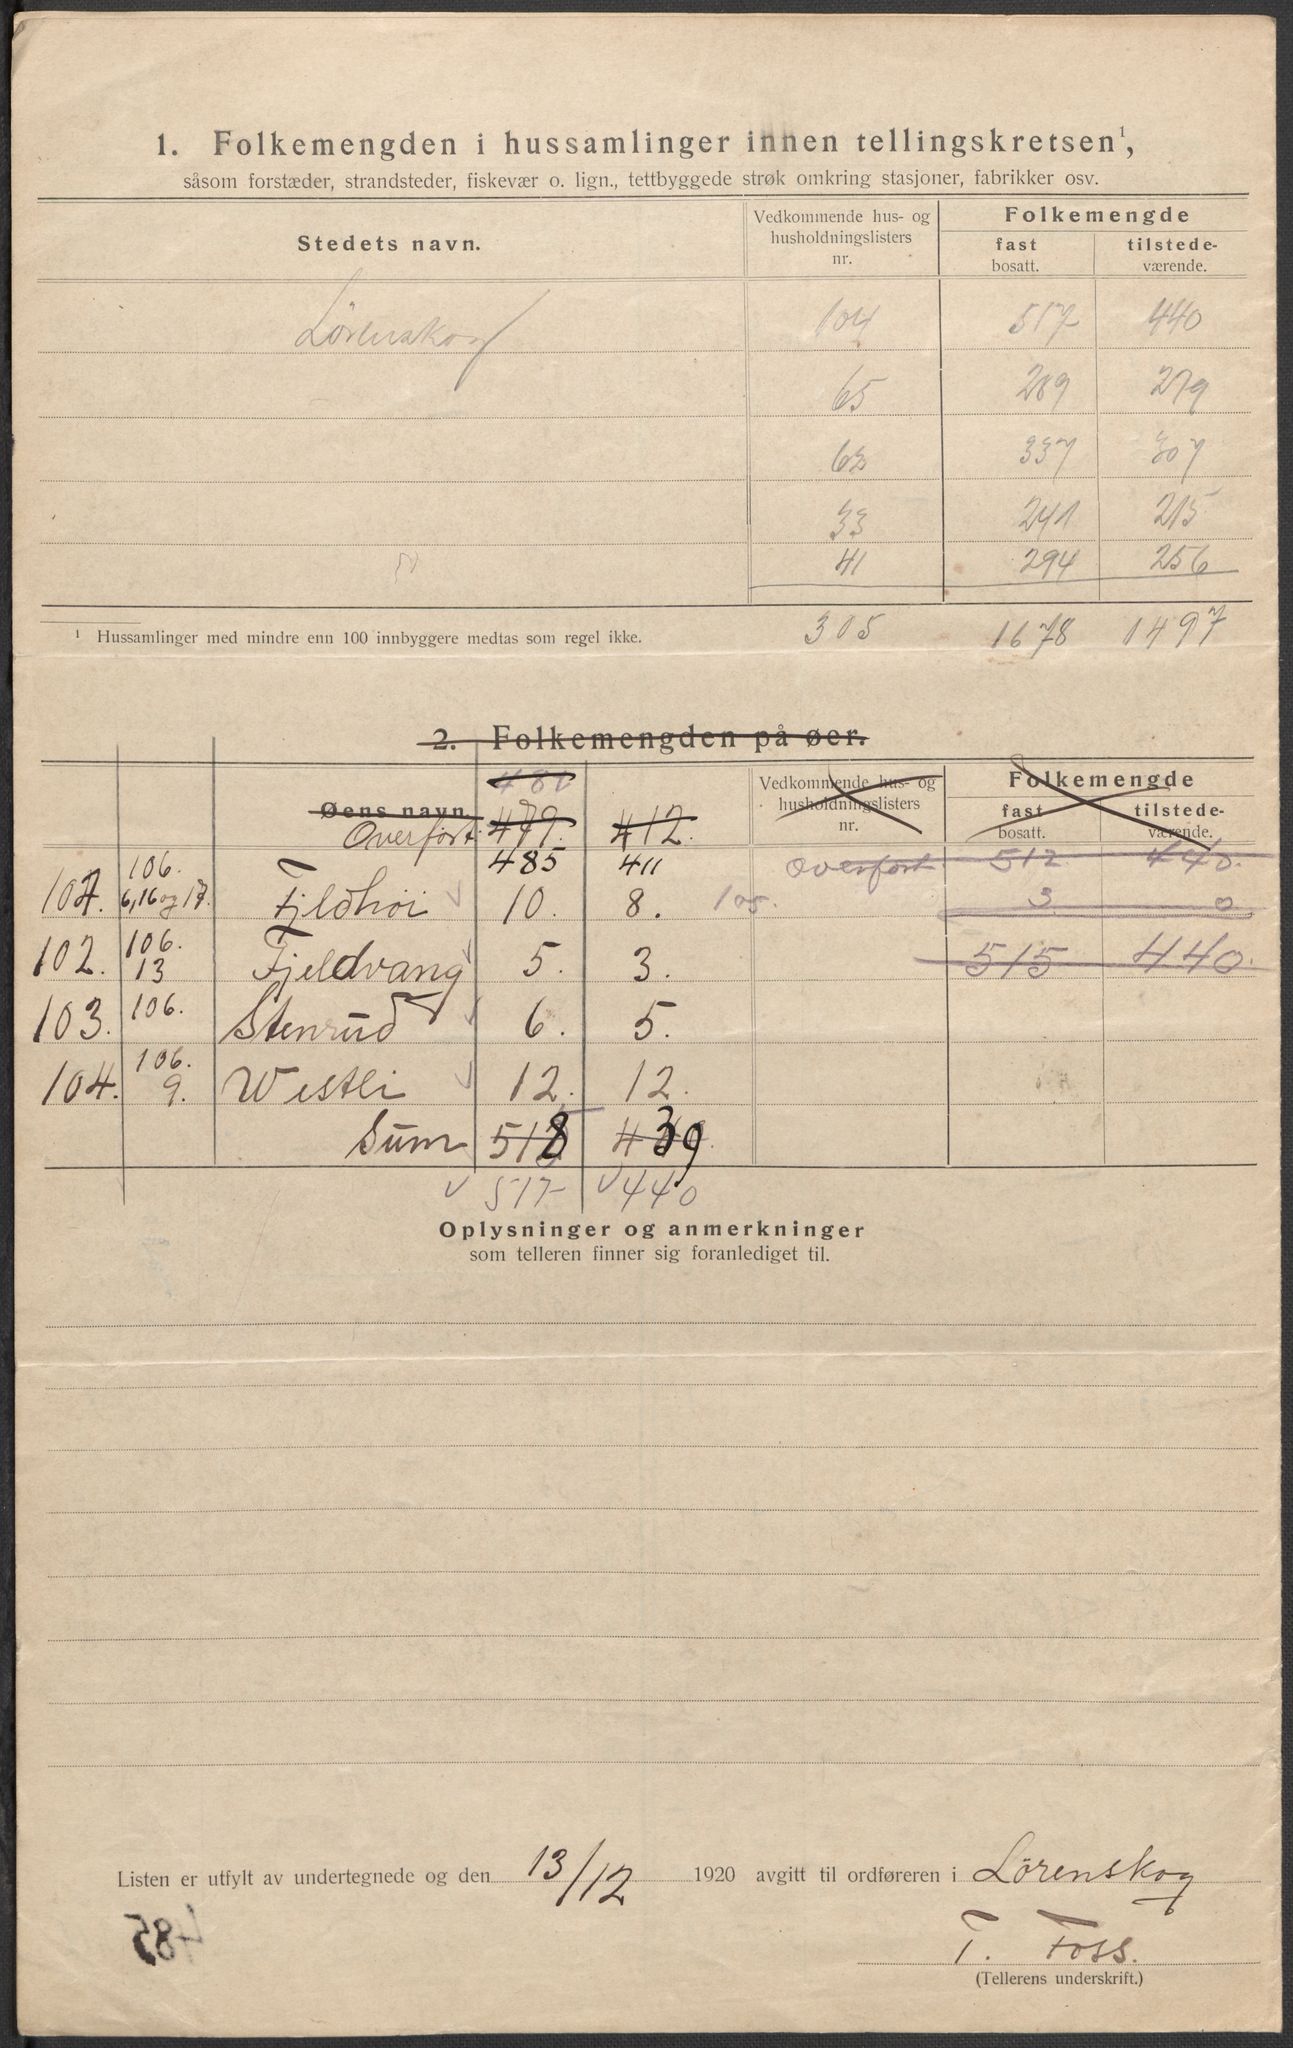 1. Folkemengden i hussamlinger innen tellingskretsen¹,
såsom forstæder, strandsteder, fiskevær o. lign., tettbyggede strøk omkring stasjoner, fabrikker osv.
Stedets navn. Vedkommende hus- og husholdningslisters nr. Folkemengde fast bosatt. tilstede-værende.
Lørenskog 104 517 440
65 289 279
62 337 307
33 241 215
41 294 256
¹ Hussamlinger med mindre enn 100 innbyggere medtas som regel ikke. 305 1678 1497
2. Folkemengden på øer.
Øens navn Vedkommende hus- og husholdningslisters nr. Folkemengde fast bosatt. tilstede-værende.
Overført 479. 412.
485 411 Overført 512 440.
107. 106. 6,16 og 17. Fjeldhøi 10. 8. 105. 3 0
102. 106. 13 Fjeldvang 5. 3. 515 440.
103. 106. Stenrud 6. 5.
104. 106. 9. Westli 12. 12.
Sum 518 439
517 440
Oplysninger og anmerkninger
som telleren finner sig foranlediget til.
Listen er utfylt av undertegnede og den 13/12 1920 avgitt til ordføreren i Lørenskog
T. Foss.
(Tellerens underskrift.)
485